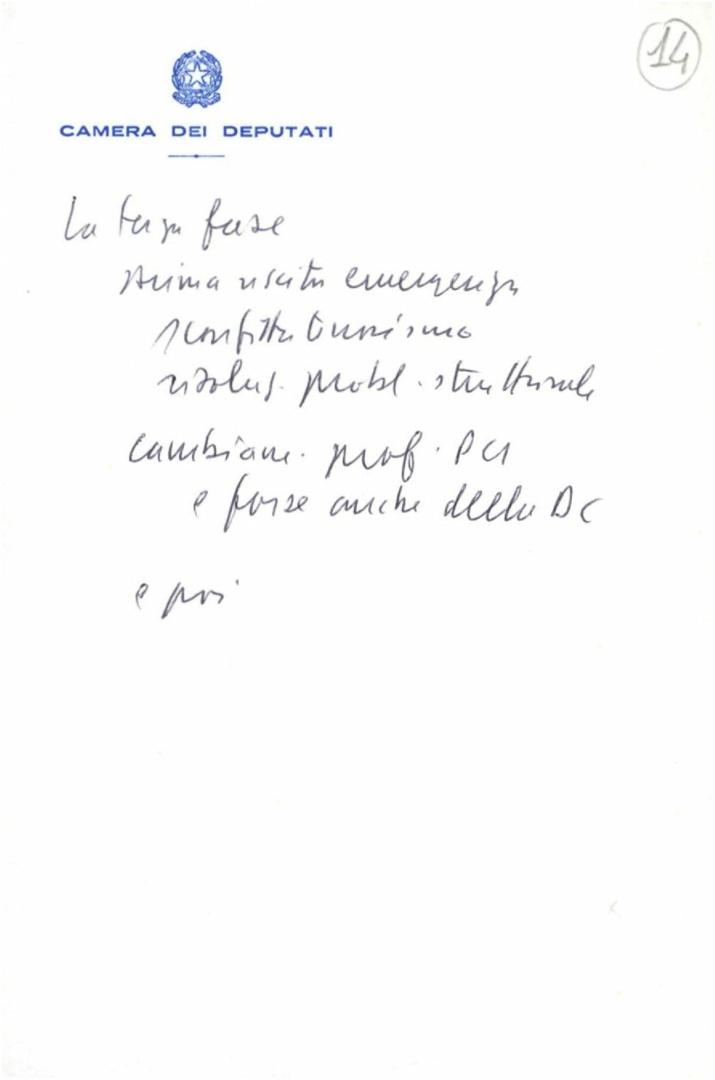 14
CAMERA DEI DEPUTATI
La terza fase
prima uscita emergenza
sconfitta terrorismo
risoluz. probl. strutturale
cambiam. prof. PCI
e forse anche della DC
e poi